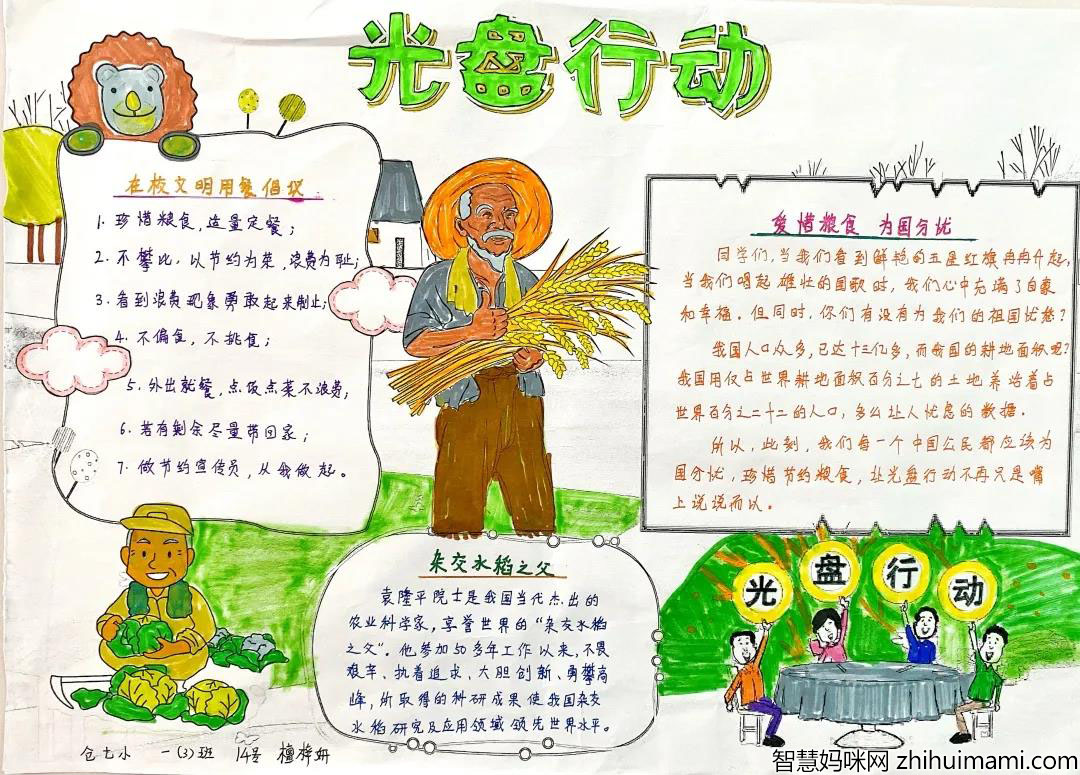 光盘行动
在校文明用餐倡议
1. 珍惜粮食,适量定餐;
2. 不攀比,以节约为荣,浪费为耻;
3. 看到浪费现象勇敢起来制止;
4. 不偏食,不挑食;
5. 外出就餐,点饭点菜不浪费;
6. 若有剩余尽量带回家;
7. 做节约宣传员,从我做起。
爱惜粮食 为国分忧
同学们,当我们看到鲜艳的五星红旗冉冉升起,
当我们唱起雄壮的国歌时,我们心中充满了自豪
和幸福。但同时,你们有没有为我们的祖国忧愁?
我国人口众多,已达十三亿多,而我国的耕地面积呢?
我国用仅占世界耕地面积百分之七的土地养活着占
世界百分之二十二的人口,多么让人忧虑的数据。
所以,此刻,我们每一个中国公民都应该为
国分忧,珍惜节约粮食,让光盘行动不再只是嘴
上说说而以。
杂交水稻之父
袁隆平院士是我国当代杰出的
农业科学家,享誉世界的“杂交水稻
之父”。他参加50多年工作以来,不畏
艰辛、执着追求、大胆创新、勇攀高
峰,所取得的科研成果使我国杂交
水稻研究及应用领域领先世界水平。
光盘行动
仓七小 一(3)班 14号
智慧妈咪网 zhihuimami.com